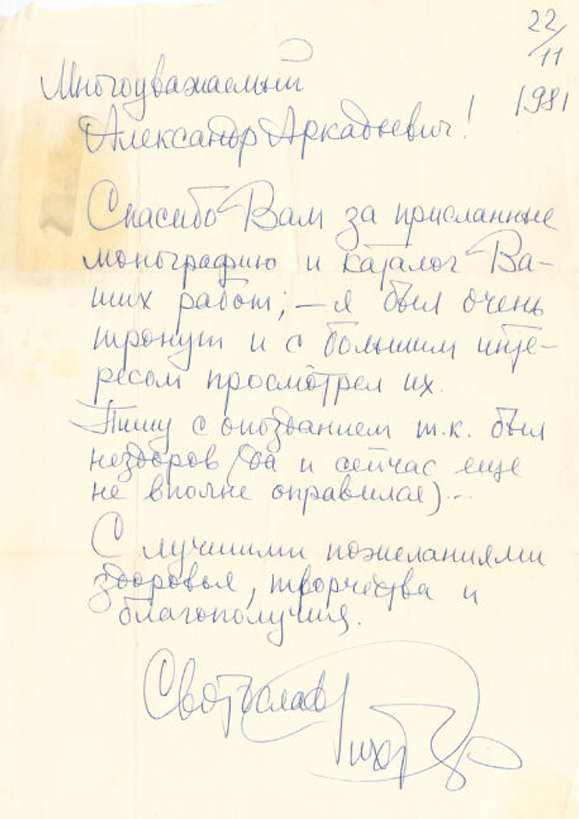 22/11
1981
Многоуважаемый
Александр Аркадьевич!
Спасибо Вам за присланные
монографию и каталог Ва-
ших работ; – я был очень
тронут и с большим инте-
ресом просмотрел их.
Пишу с опозданием т.к. был
нездоров (да и сейчас еще
не вполне оправился)...
С лучшими пожеланиями
здоровья, творчества и
благополучия.
Святослав
Рихтер